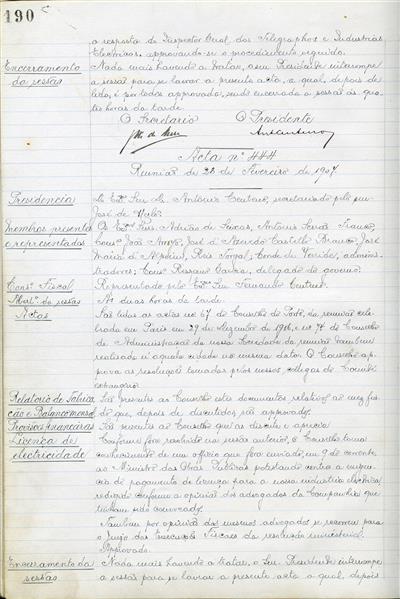 190
a resposta do Inspector Geral dos Telegraphos e Industrias
Electricas, approvando-se o procedimento seguido.
Encerramento Nada mais havendo a tratar, o Snr. Presidente interrompe
da sessão a sessão para se lavrar a presente acta, a qual, depois de
lida, é por todos approvada, sendo encerrada a sessão ás quatro
horas da tarde.
O Secretario O Presidente
Acta nº 444
Reunião de de Fevereiro de 1907
Presidencia do Exmo Snr. Antonio Centeno, secretariado pelo Snr.
José de Mello.
Membros presentes Os Exmos Snrs. Adrião de Seixas, Antonio
e representados Consº João Arroyo, José d'Azevedo Castello Branco, José
Maria d'Alpoim, Conde de administradores;
Consº delegado do governo.
Consº Fiscal Representado pelo Exmo Snr. Fernando
Abertª da sessão Ás duas horas da tarde.
Actas São lidas as actas nos 67 do Conselho de reunião celebrada
em Paris em 29 de Dezembro de 1906, e nº 74 do Conselho
de Administração da nossa Sociedade da reunião tambem
realisada n'aquela cidade na mesma data. O Conselho approva
as resoluções tomadas pelos nossos collegas do Comité
estrangeiro.
Relatorio de Fabrica- São presentes ao Conselho estes documentos relativos ao mez
ção e Balanço mensal que, depois de discutidos são approvados.
Provisões financeiras São presentes ao Conselho que as discute e aprecia.
Licença de Conforme fora resolvido na sessão anterior, o Conselho toma
electricidade conhecimento de um officio que foi enviado, em 9 do corrente,
ao Ministro das Obras Publicas protestando contra a
do pagamento de licença para a nossa industria electrica,
redigido conforme a opinião dos advogados da Companhia que
tinham sido convocados.
Tambem por opinião dos mesmos advogados se recorreu para
o Juizo das Execuções Fiscaes da resolução ministerial.
Approvado.
Encerramento da Nada mais havendo a tratar, o Snr. Presidente interrompe
sessão a sessão para se lavrar a presente acta a qual, depois